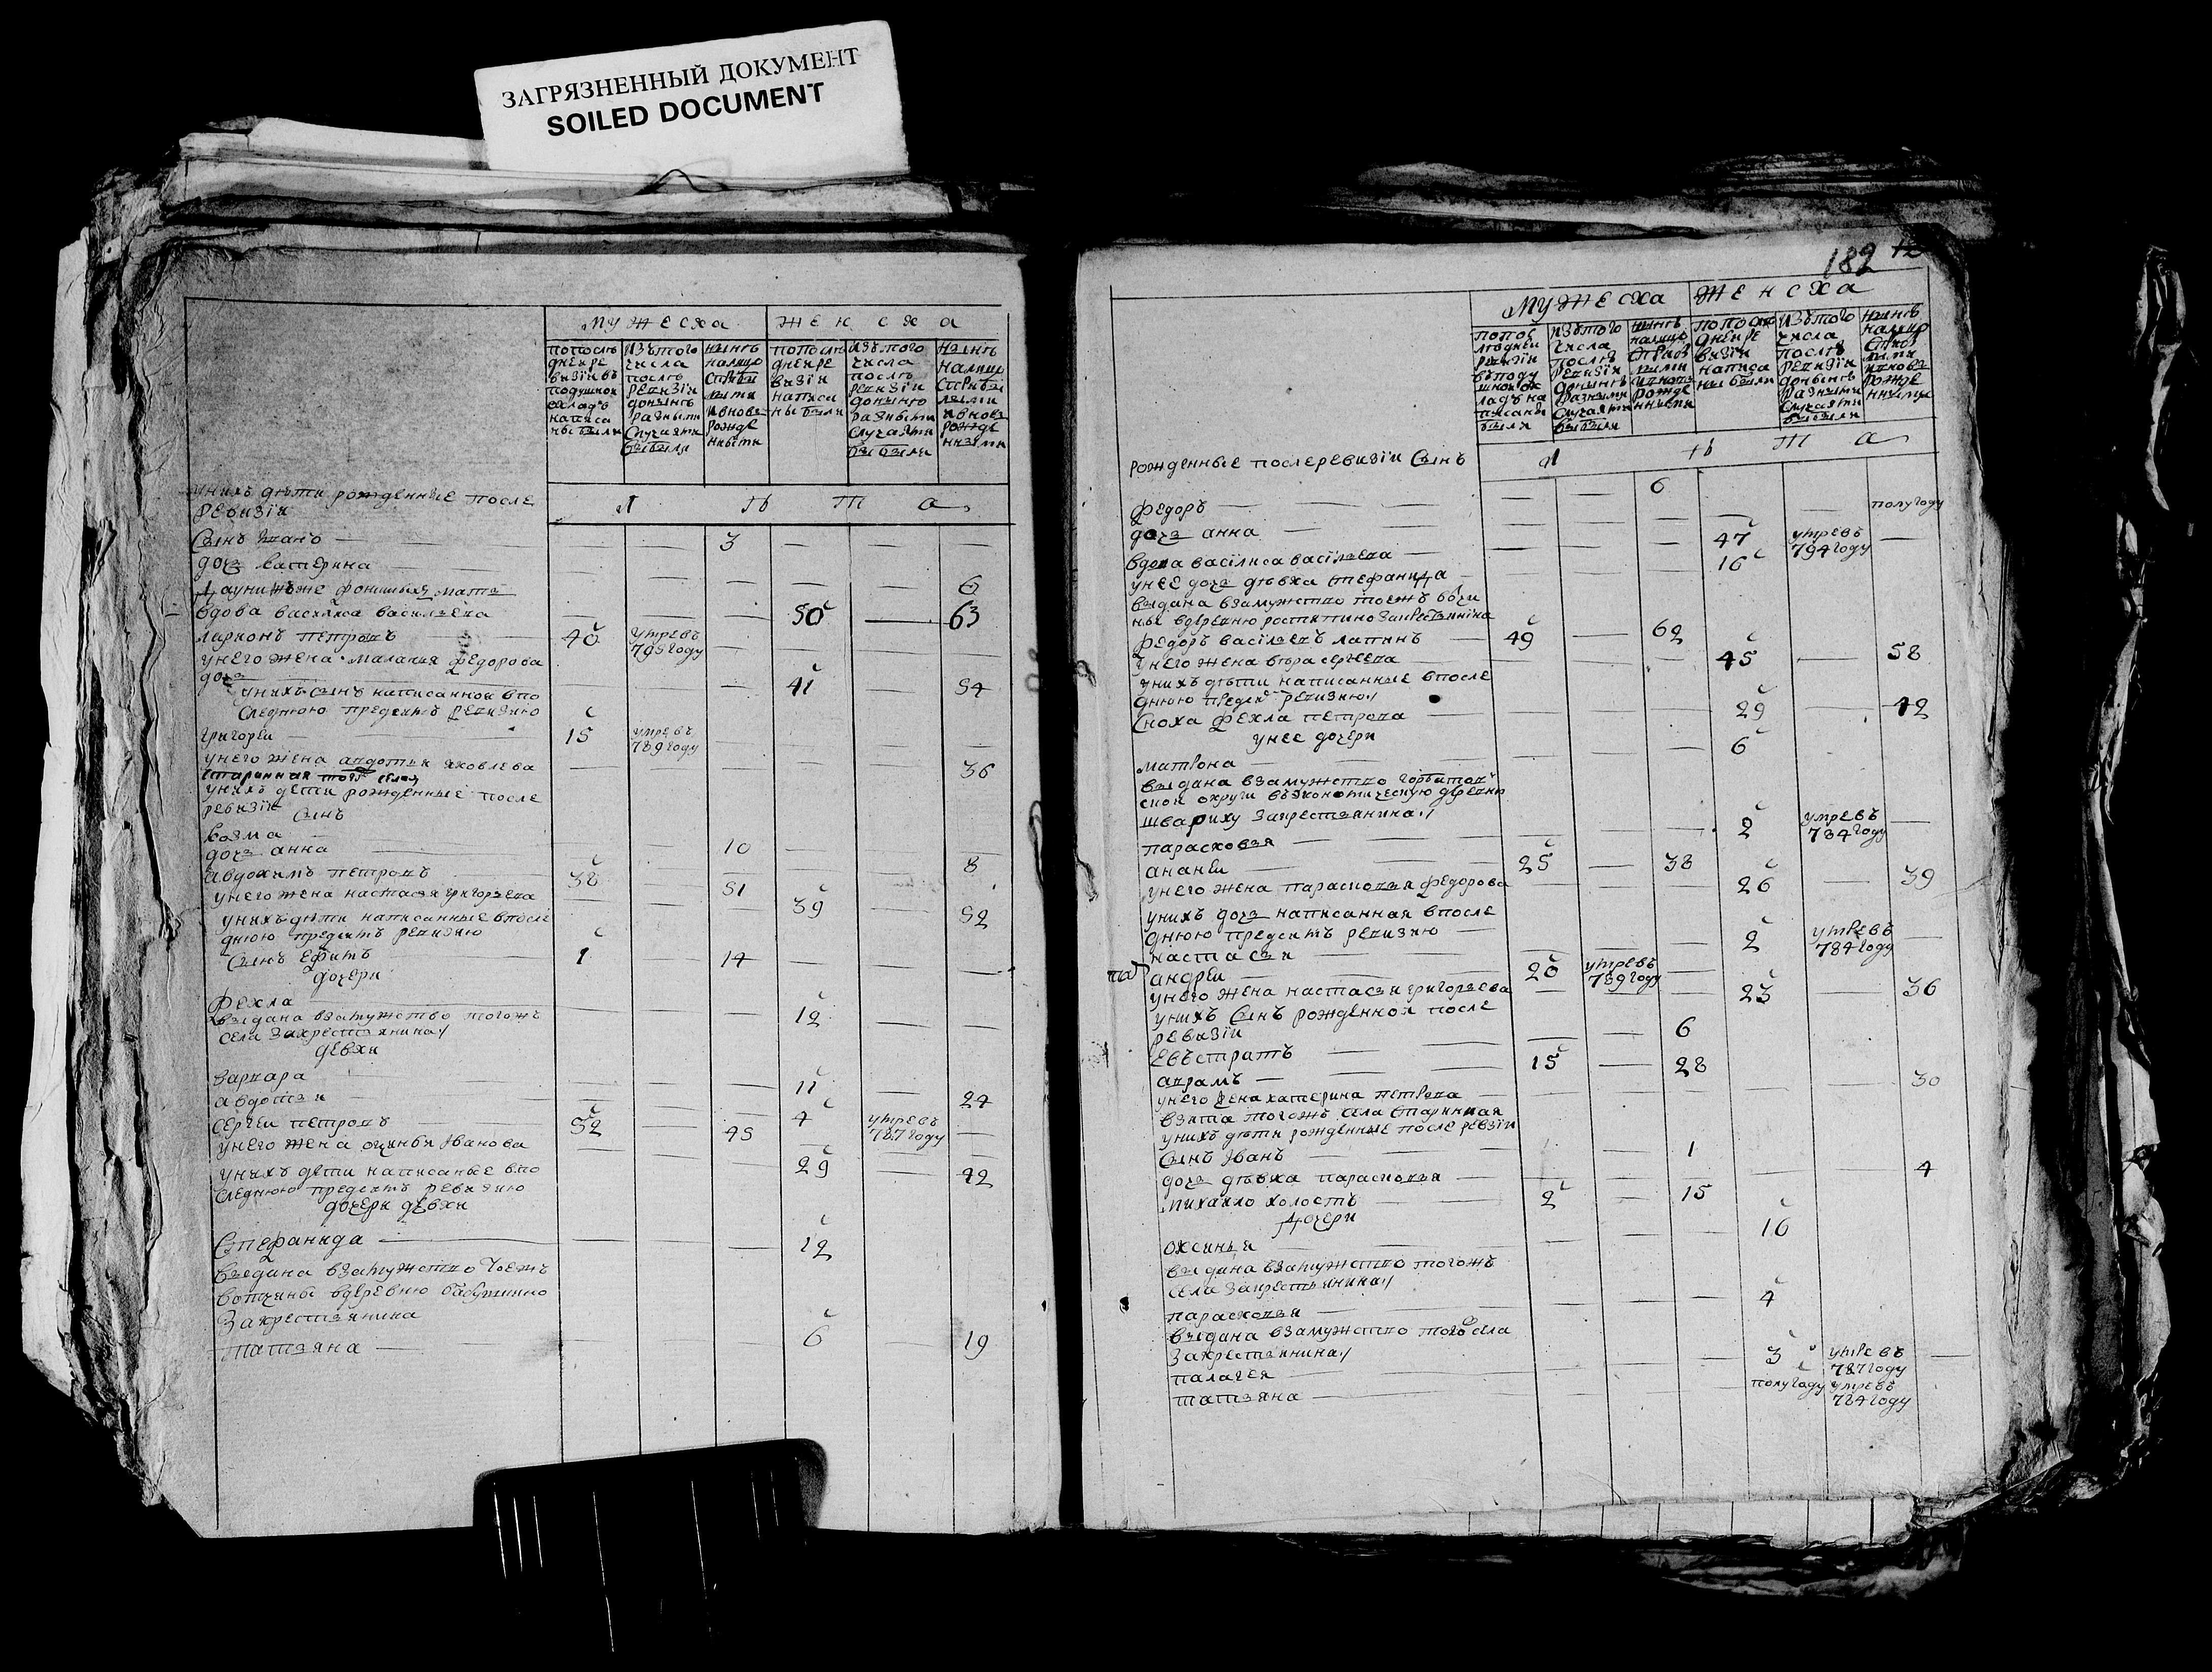 ЗАГРЯЗНЕННЫЙ ДОКУМЕНТ
SOILED DOCUMENT
мужеска женска
попослѣ днеи ре визіи въ подушнои окладъ написа ны были
изътого числа послѣ ревизіи донынѣ разными случаями выбыли
нынѣ налицо старыми ивнове рожде нными
попослѣ днеи ре визіи написа ны были
изътого числа послѣ ревизіи донынѣ разными случаями выбыли
нынѣ налицо старыми ивновь рожде нными
л ѣ т а
унихъ дѣти рожденные после
ревизіи
сынъ — — — 3 — — —
дочь катерина — — — — — — 6
вдова василиса васильева — — — 50 — 63
ларионъ петровъ 40 умревъ 795году — — — —
унего жена маланья федорова — — — 41 — 54
дочь
унихъ сынъ написанной впо
следнюю предсимъ ревизию
григореи — 15 умревъ 789году — — — —
унего жена авдотья яковлева — — — — — 36
старинная того села
унихъ дети рожденные после
ревизіи
сынъ
козма — — — 10 — — —
дочь анна — — — — — — 8
авдокимъ петровъ 38 — 51
унего жена настасья григорьева — — — 39 — 52
унихъ дѣти написанные впосле
днюю предсимъ ревизию
сынъ ефимъ — 1 — 14 — — —
дочери
фекла — — — — 12 — —
выдана взамужство тогожъ
села закрестьянина
девки
варвара — — — — 11 — 24
авдотья — — — — 4 умревъ 787году —
сергеи петровъ — 32 — 45 — — —
унего жена аксинья иванова — — — 29 — 42
унихъ дети написаные впо
следнюю предсимъ ревизию
дочери девки
стефанида — — — — 12
выдана взамужство тоежъ
вотчины вдеревню бабушкино
закрестьянина
татьяна — — — — 6 — 19
182 12
мужеска женска
попос лѣднеи ревизіи въподу шнои ок ладъ на писаны были
изътого числа послѣ ревизіи донынѣ разными случаями выбыли
нынѣ налицо старыми ивновь рожде нными
попослѣ днеи ре визіи написа ны были
изътого числа послѣ ревизіи донынѣ разными случаями выбыли
нынѣ налицо старыми ивновь рожде нными
л ѣ т а
рожденные послеревизіи сынъ
федоръ — — — 6
дочь анна — — — — — — полугоду
вдова василиса васильева — — — — 47 умревъ 794году —
унее дочь дѣвка стефанида — 16
выдана взамужство тоежъ вотчи
ны вдеревню закрестьянина
федоръ васильевъ лапинъ — 49 — 62
унего жена вѣра сергеева — — — — 45 — 58
унихъ дѣти написанные впосле
днюю предсимъ ревизию
сноха фекла петрова — — — — 29 — 42
унее дочери
матрона — — — — 6
выдана взамужство горбатов
скои округи въ экономическую деревню
швариху закрестьянина
парасковья — — — — 2 умревъ 784году —
ананеи — 25 — 38
унего жена парасковья федорова — — — 26 — 39
унихъ дочь написанная впосле
днюю предсимъ ревизию —
настасья — — — — 2 умревъ 784году —
андреи — 20 умревъ 789году —
унего жена настасья григорьева — — — 23 — 36
унихъ сынъ рожденной после
ревизіи
евъстратъ — — — 6
аврамъ — 15 — 28
унего жена катерина петрова — — — — — 30
взята тогожъ села старинная
унихъ дѣти рожденные после ревзіи
сынъ иванъ — — — 1
дочь дѣвка парасковья — — — — — 4
михаило холостъ — 2 — 15
дочери
оксинья — — — — 16
выдана взамужство тогожъ
села закрестьянина
парасковья — — — — 4
выдана взамужство того села
закрестьянина
палагея — — — — 3 умревъ 787году —
татьяна — — — — полугоду умревъ 784году